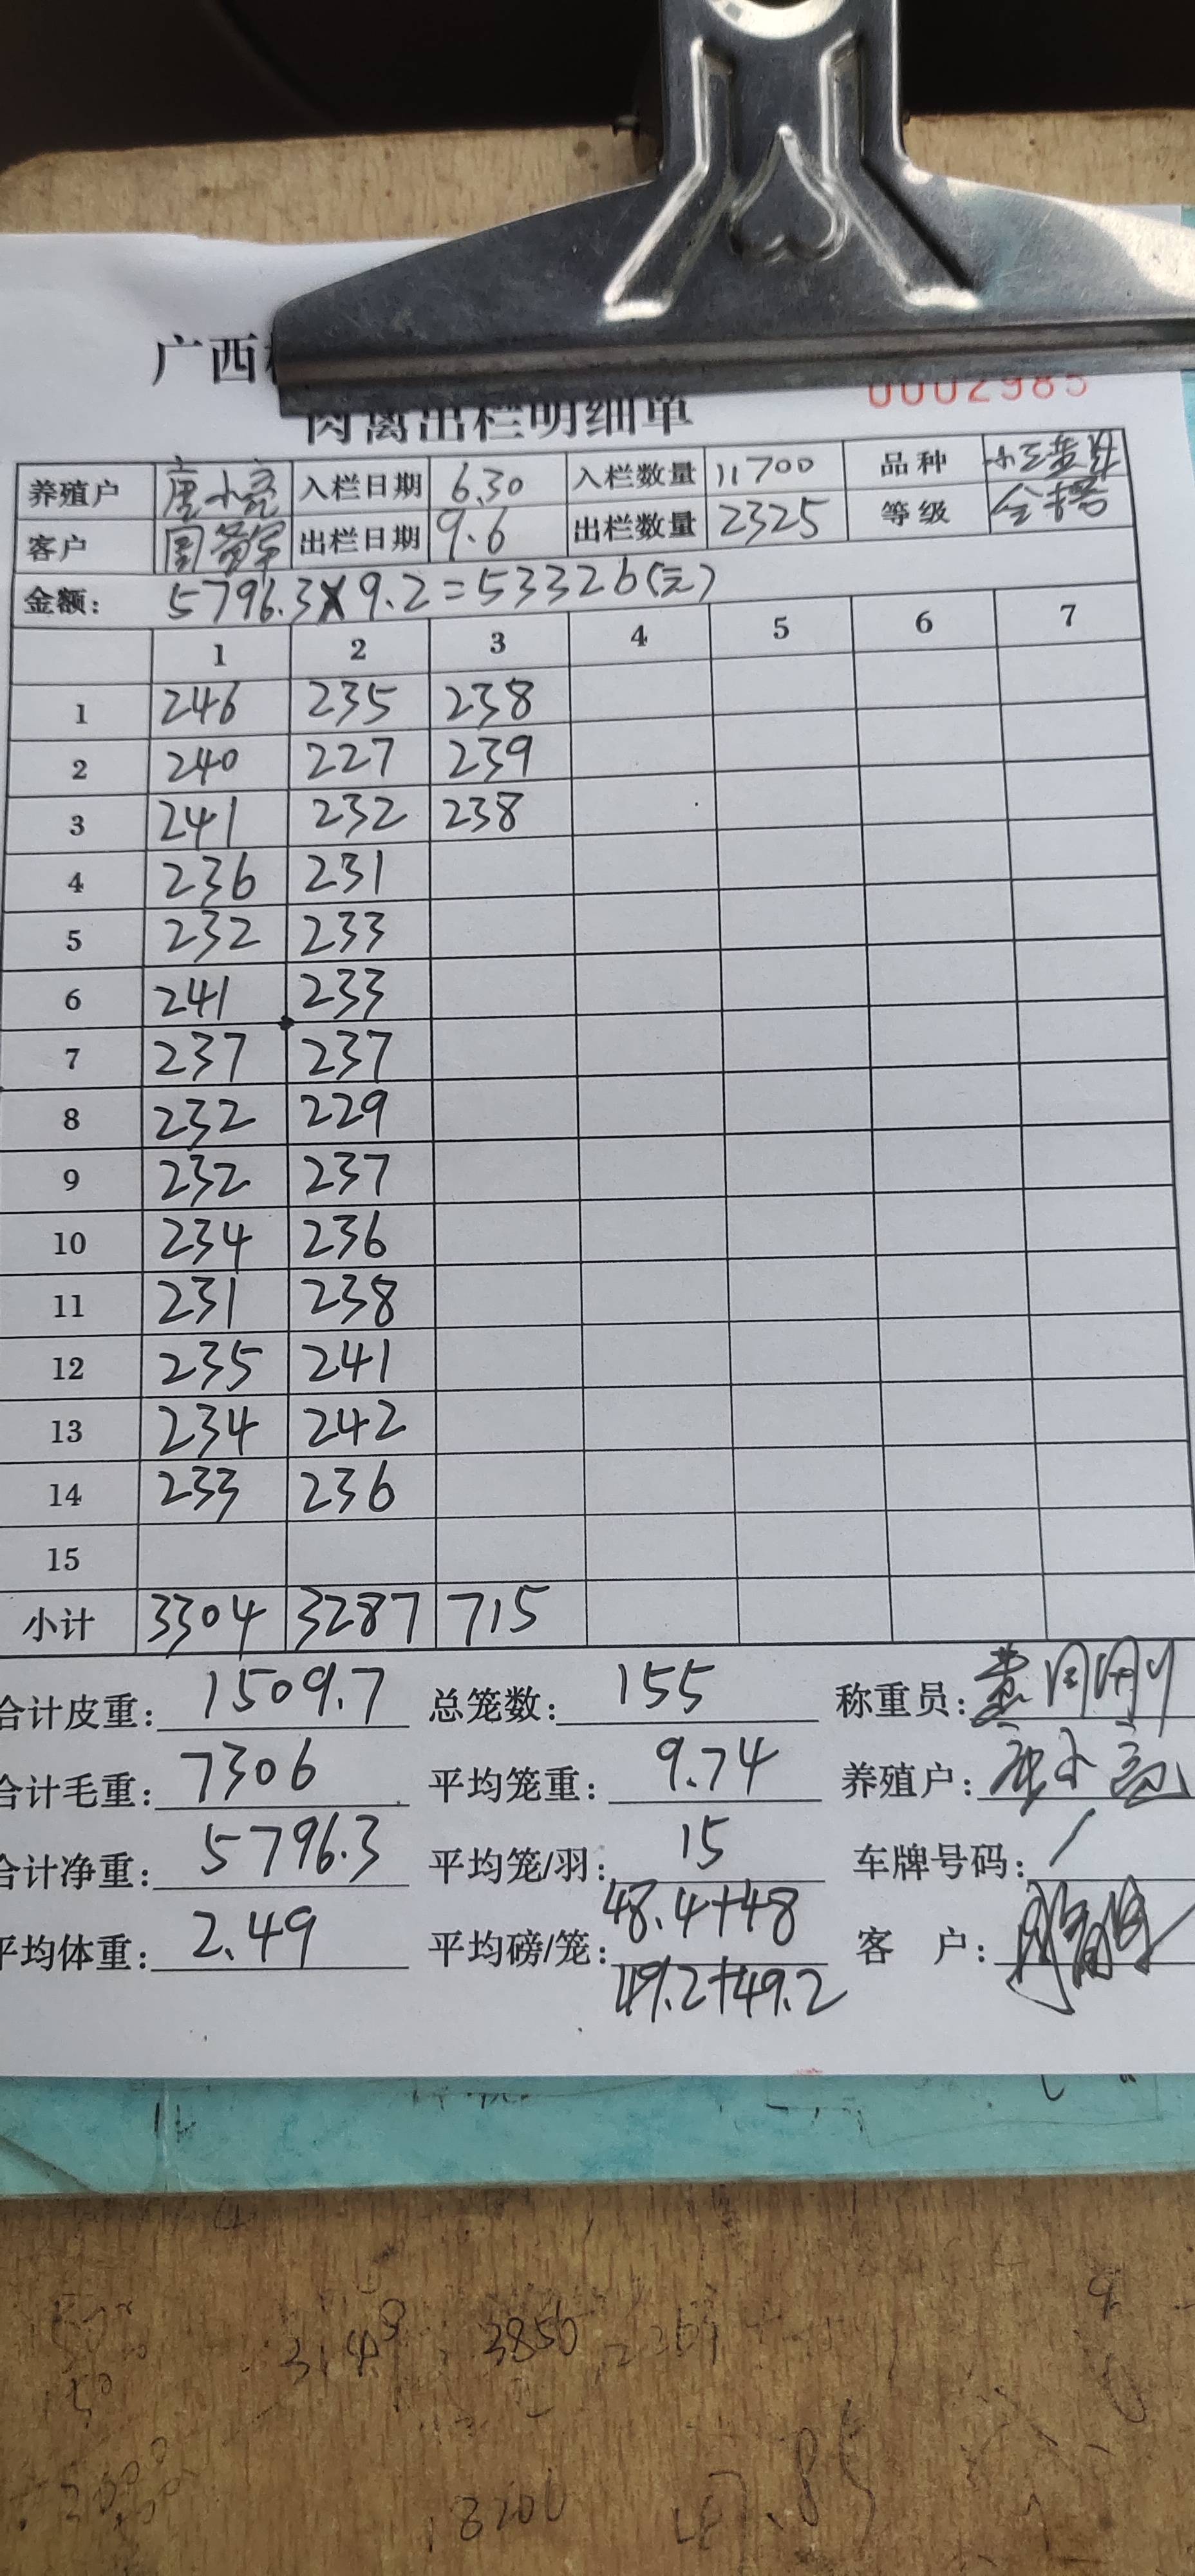 广西
肉禽出栏明细单 0002985
养殖户 唐小亮 入栏日期 6.30 入栏数量 11700 品种
客户 出栏日期 9.6 出栏数量 2325 等级
金额: 5796.3×9.2=53326(元)
1 2 3 4 5 6 7
1 246 235 238
2 240 227 239
3 241 232 238
4 236 231
5 232 233
6 241 233
7 237 237
8 232 229
9 232 237
10 234 236
11 231 238
12 235 241
13 234 242
14 233 236
15
小计 3304 3287 715
合计皮重: 1509.7 总笼数: 155 称重员:
合计毛重: 7306 平均笼重: 9.74 养殖户: 唐小亮
合计净重: 5796.3 平均笼/羽: 15 车牌号码: /
平均体重: 2.49 平均磅/笼: 48.4+48 客 户:
49.2+49.2
3850